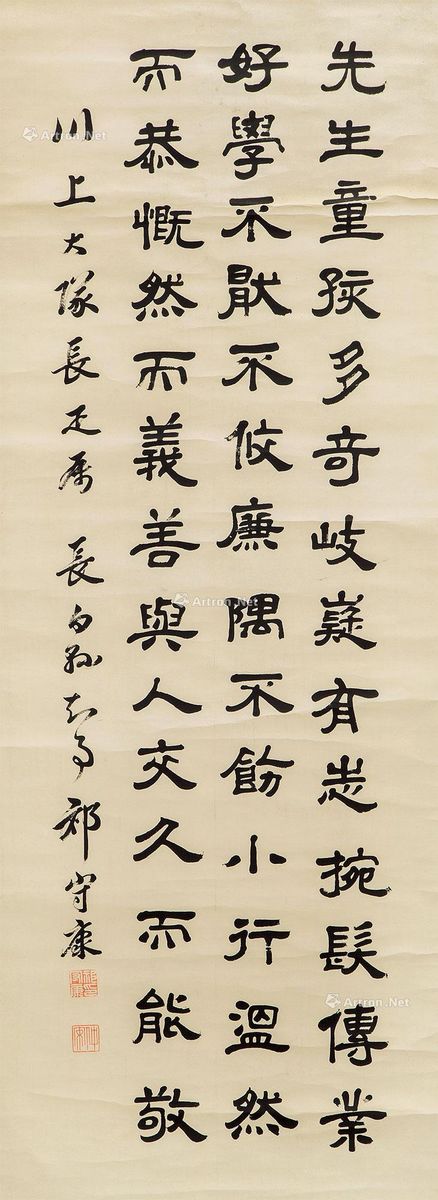 先生童孩多奇岐嶷有志捥髮傳業
好學不猒不攸廉隅不飭小行溫然
而恭慨然而義善與人交久而能敬
川上大隊長疋属 長白縣知事 祁守康
Artron.Net
Artron.Net
Artron.Net